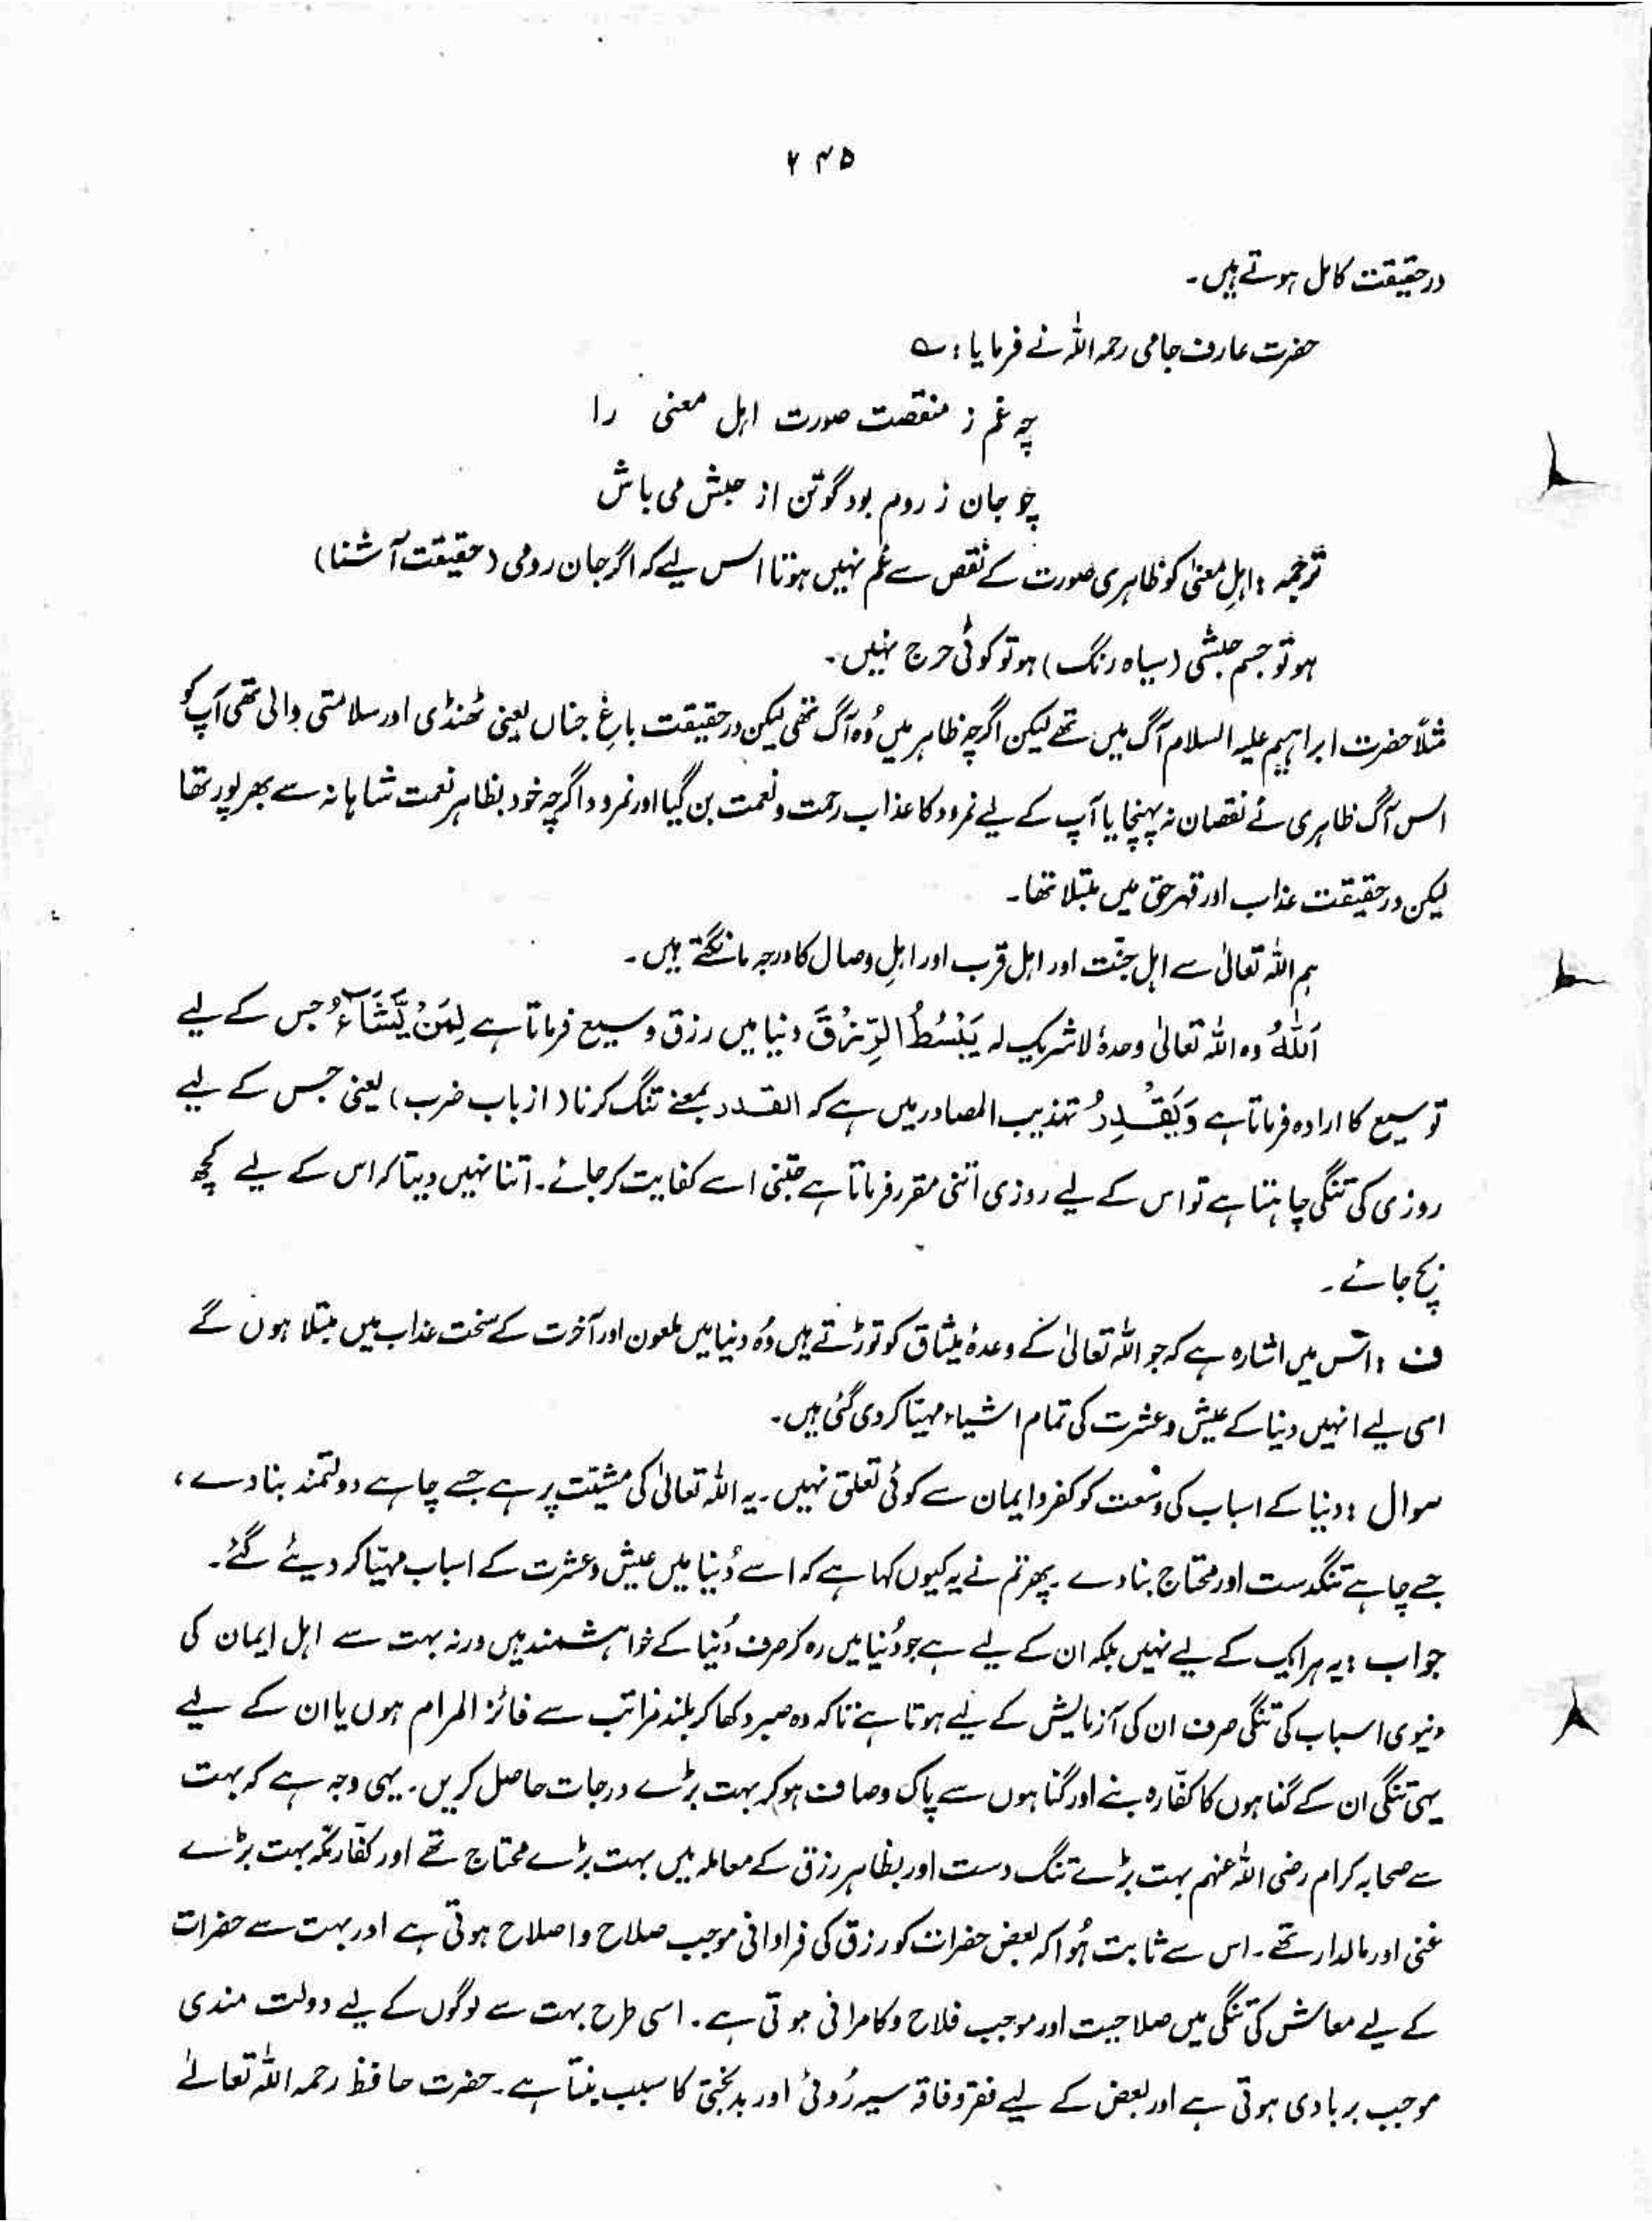 ۲۴۵
درحقیقت کامل ہوتے ہیں۔
حضرت عارف جامی رحمہ اللہ نے فرمایا : ؎
چہ غم ز منقصت صورت اہل معنی را
چو جان ز روم بود گو تن از حبش می باش
ترجمہ : اہلِ معنیٰ کو ظاہری صورت کے نقص سے غم نہیں ہوتا اس لیے کہ اگر جان رومی (حقیقت آشنا)
ہو تو جسم حبشی (سیاہ رنگ) ہو تو کوئی حرج نہیں۔
مثلاً حضرت ابراہیم علیہ السلام آگ میں تھے لیکن اگرچہ ظاہر میں وُہ آگ تھی لیکن درحقیقت باغِ جناں یعنی ٹھنڈی اور سلامتی والی تھی آپ کو
اس آگ ظاہری نے نقصان نہ پہنچایا آپ کے لیے نمرود کا عذاب رحمت و نعمت بن گیا اور نمرود اگرچہ خود بظاہر نعمت شاہانہ سے بھرپور تھا
لیکن درحقیقت عذاب اور قہر حق میں مبتلا تھا۔
ہم اللہ تعالیٰ سے اہل جنّت اور اہل قرب اور اہلِ وصال کا درجہ مانگتے ہیں۔
اَللّٰہُ وہ اللہ تعالیٰ وحدہٗ لاشریک لہ یَبْسُطُ الرِّزْقَ دنیا میں رزق وسیع فرماتا ہے لِمَنْ یَّشَآءُ جس کے لیے
توسیع کا ارادہ فرماتا ہے وَیَقْدِرُ تہذیب المصادر میں ہے کہ القدر بمعنے تنگ کرنا (از باب ضرب) یعنی جس کے لیے
روزی کی تنگی چاہتا ہے تو اس کے لیے روزی اتنی مقرر فرماتا ہے جتنی اسے کفایت کر جائے۔ اتنا نہیں دیتا کہ اس کے لیے کچھ
بچ جائے۔
ف : اس میں اشارہ ہے کہ جو اللہ تعالیٰ کے وعدۂ میثاق کو توڑتے ہیں وُہ دنیا میں ملعون اور آخرت کے سخت عذاب میں مبتلا ہوں گے
اسی لیے انہیں دنیا کے عیش و عشرت کی تمام اشیاء مہیّا کر دی گئی ہیں۔
سوال : دنیا کے اسباب کی وسعت کو کفر و ایمان سے کوئی تعلق نہیں۔ یہ اللہ تعالیٰ کی مشیّت پر ہے جسے چاہے دولتمند بنا دے ،
جسے چاہے تنگدست اور محتاج بنا دے۔ پھر تم نے یہ کیوں کہا ہے کہ اسے دُنیا میں عیش و عشرت کے اسباب مہیّا کر دیئے گئے۔
جواب : یہ ہر ایک کے لیے نہیں بلکہ ان کے لیے ہے جو دُنیا میں رہ کر صرف دُنیا کے خواہشمند ہیں ورنہ بہت سے اہل ایمان کی
دنیوی اسباب کی تنگی صرف ان کی آزمایش کے لیے ہوتا ہے تاکہ وہ صبر دکھا کر بلند مراتب سے فائز المرام ہوں یا ان کے لیے
یہی تنگی ان کے گناہوں کا کفّارہ بنے اور گناہوں سے پاک و صاف ہو کر بہت بڑے درجات حاصل کریں۔ یہی وجہ ہے کہ بہت
سے صحابہ کرام رضی اللہ عنہم بہت بڑے تنگ دست اور بظاہر رزق کے معاملہ میں بہت بڑے محتاج تھے اور کفّار مکّہ بہت بڑے
غنی اور مالدار تھے۔ اس سے ثابت ہُوا کہ بعض حضرات کو رزق کی فراوانی موجب صلاح و اصلاح ہوتی ہے اور بہت سے حضرات
کے لیے معاش کی تنگی میں صلاحیت اور موجب فلاح و کامرانی ہوتی ہے۔ اسی طرح بہت سے لوگوں کے لیے دولت مندی
موجب بربادی ہوتی ہے اور بعض کے لیے فقر و فاقہ سیہ رُوئی اور بدبختی کا سبب بنتا ہے۔ حضرت حافظ رحمہ اللہ تعالےٰ